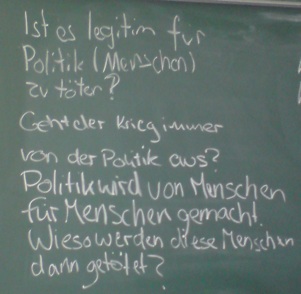 Ist es legitim für
Politik (Menschen)
zu töten?
Geht der Krieg immer
von der Politik aus?
Politik wird von Menschen
für Menschen gemacht.
Wieso werden diese Menschen
dann getötet?